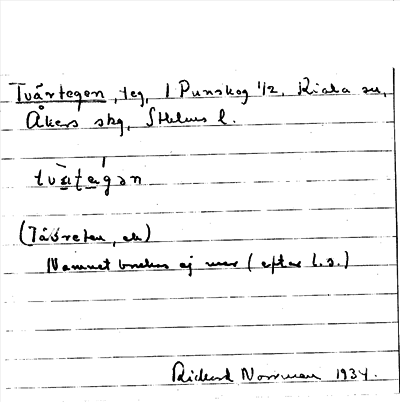 Tvärtegen, teg, 1 Punskog 1/2, Riala sn,
Åkers skg, Sthlms l.
tvàʈégən
(Tävreten, ek)
Namnet brukas ej mer (efter l.s.)
Rickard Norrman 1934.